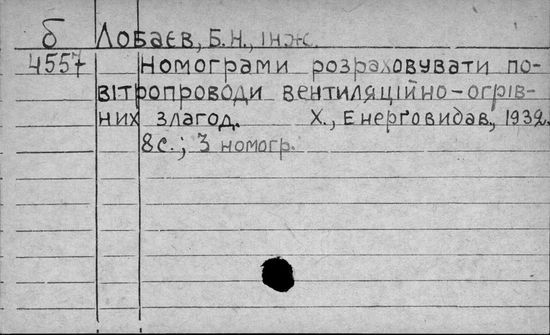 б Лобаєв, Б.Н., інж.
4557 Номограми розраховувати по-
вітропроводи вентиляційно-огрів-
них злагод. Х., Енерговидав, 1932.
8с.; 3 номогр.